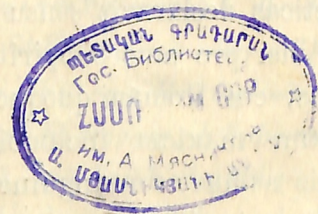 ՊԵՏԱԿԱՆ ԳՐԱԴԱՐԱՆ
Гос. Библиоте
ՀՍՍՌ
им. А. Мясн
Ա. ՄՅԱՍՆԻԿՅԱՆԻ